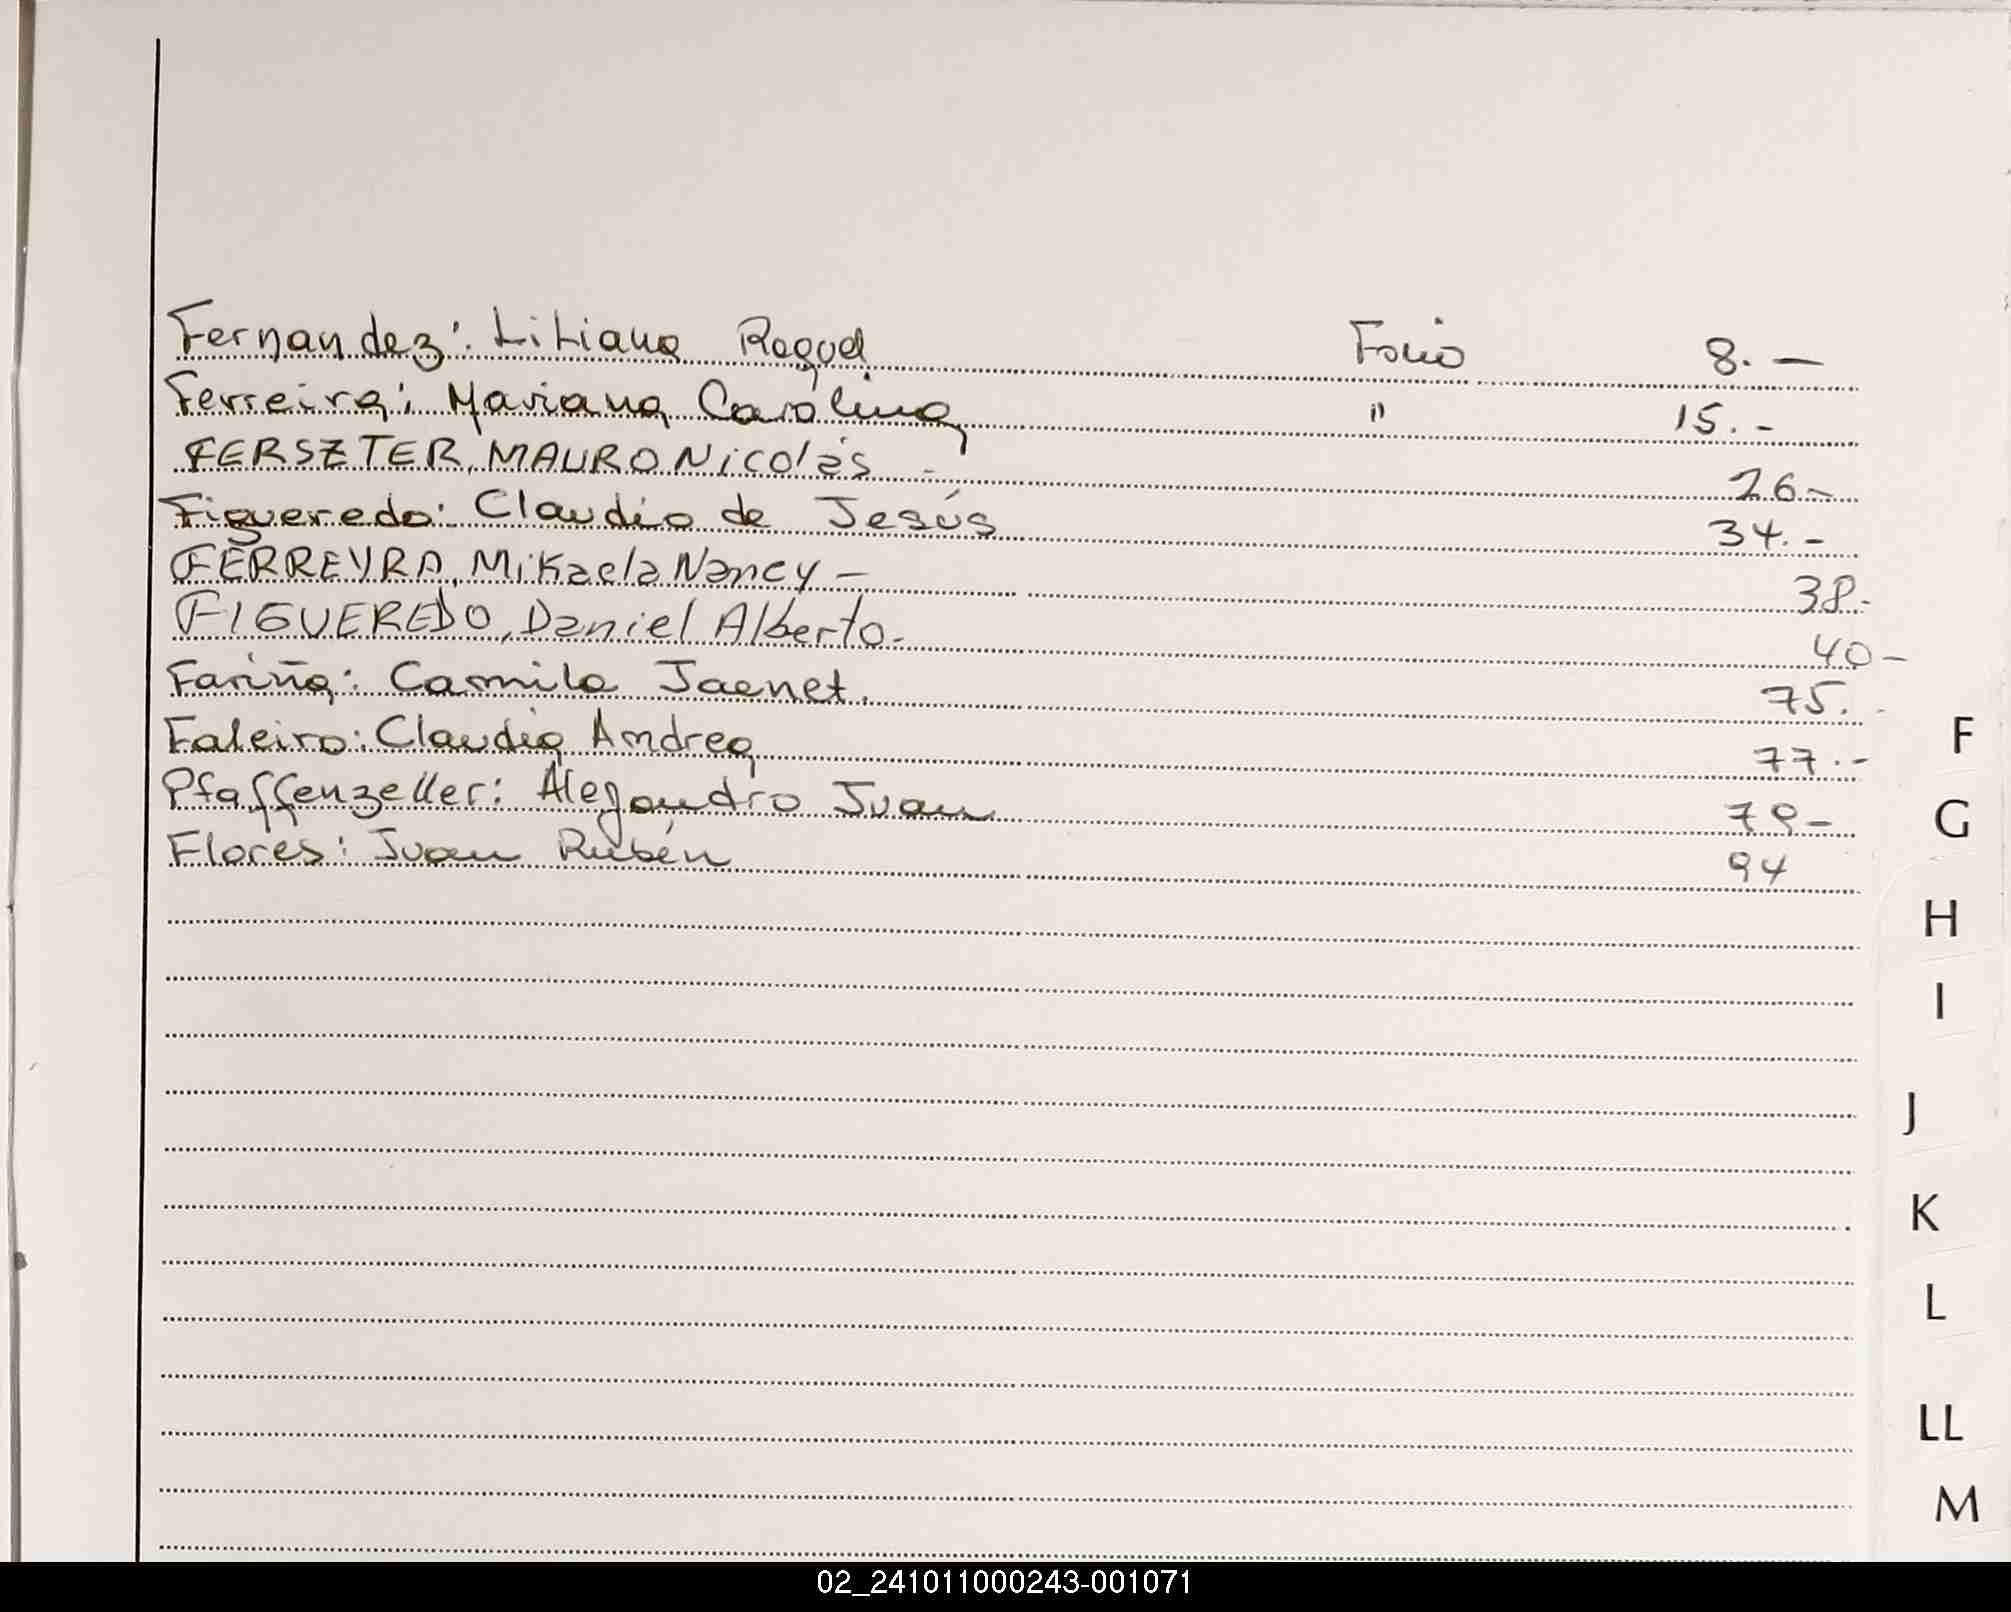 Fernandez: Liliana Raquel Folio 8.-
Ferreira: Mariana Carolina " 15.-
FERSZTER, MAURO Nicolás - 26-
Figueredo: Claudio de Jesús 34.-
FERREYRA, Mikaela Nancy - 38.-
FIGUEREDO, Daniel Alberto. 40-
Fariña: Camila Jaenet. 75.
Faleiro: Claudia Andrea 77.-
Pfaffenzeller: Alejandro Juan 79-
Flores: Juan Rubén 94
F
G
H
I
J
K
L
LL
M
02_241011000243-001071